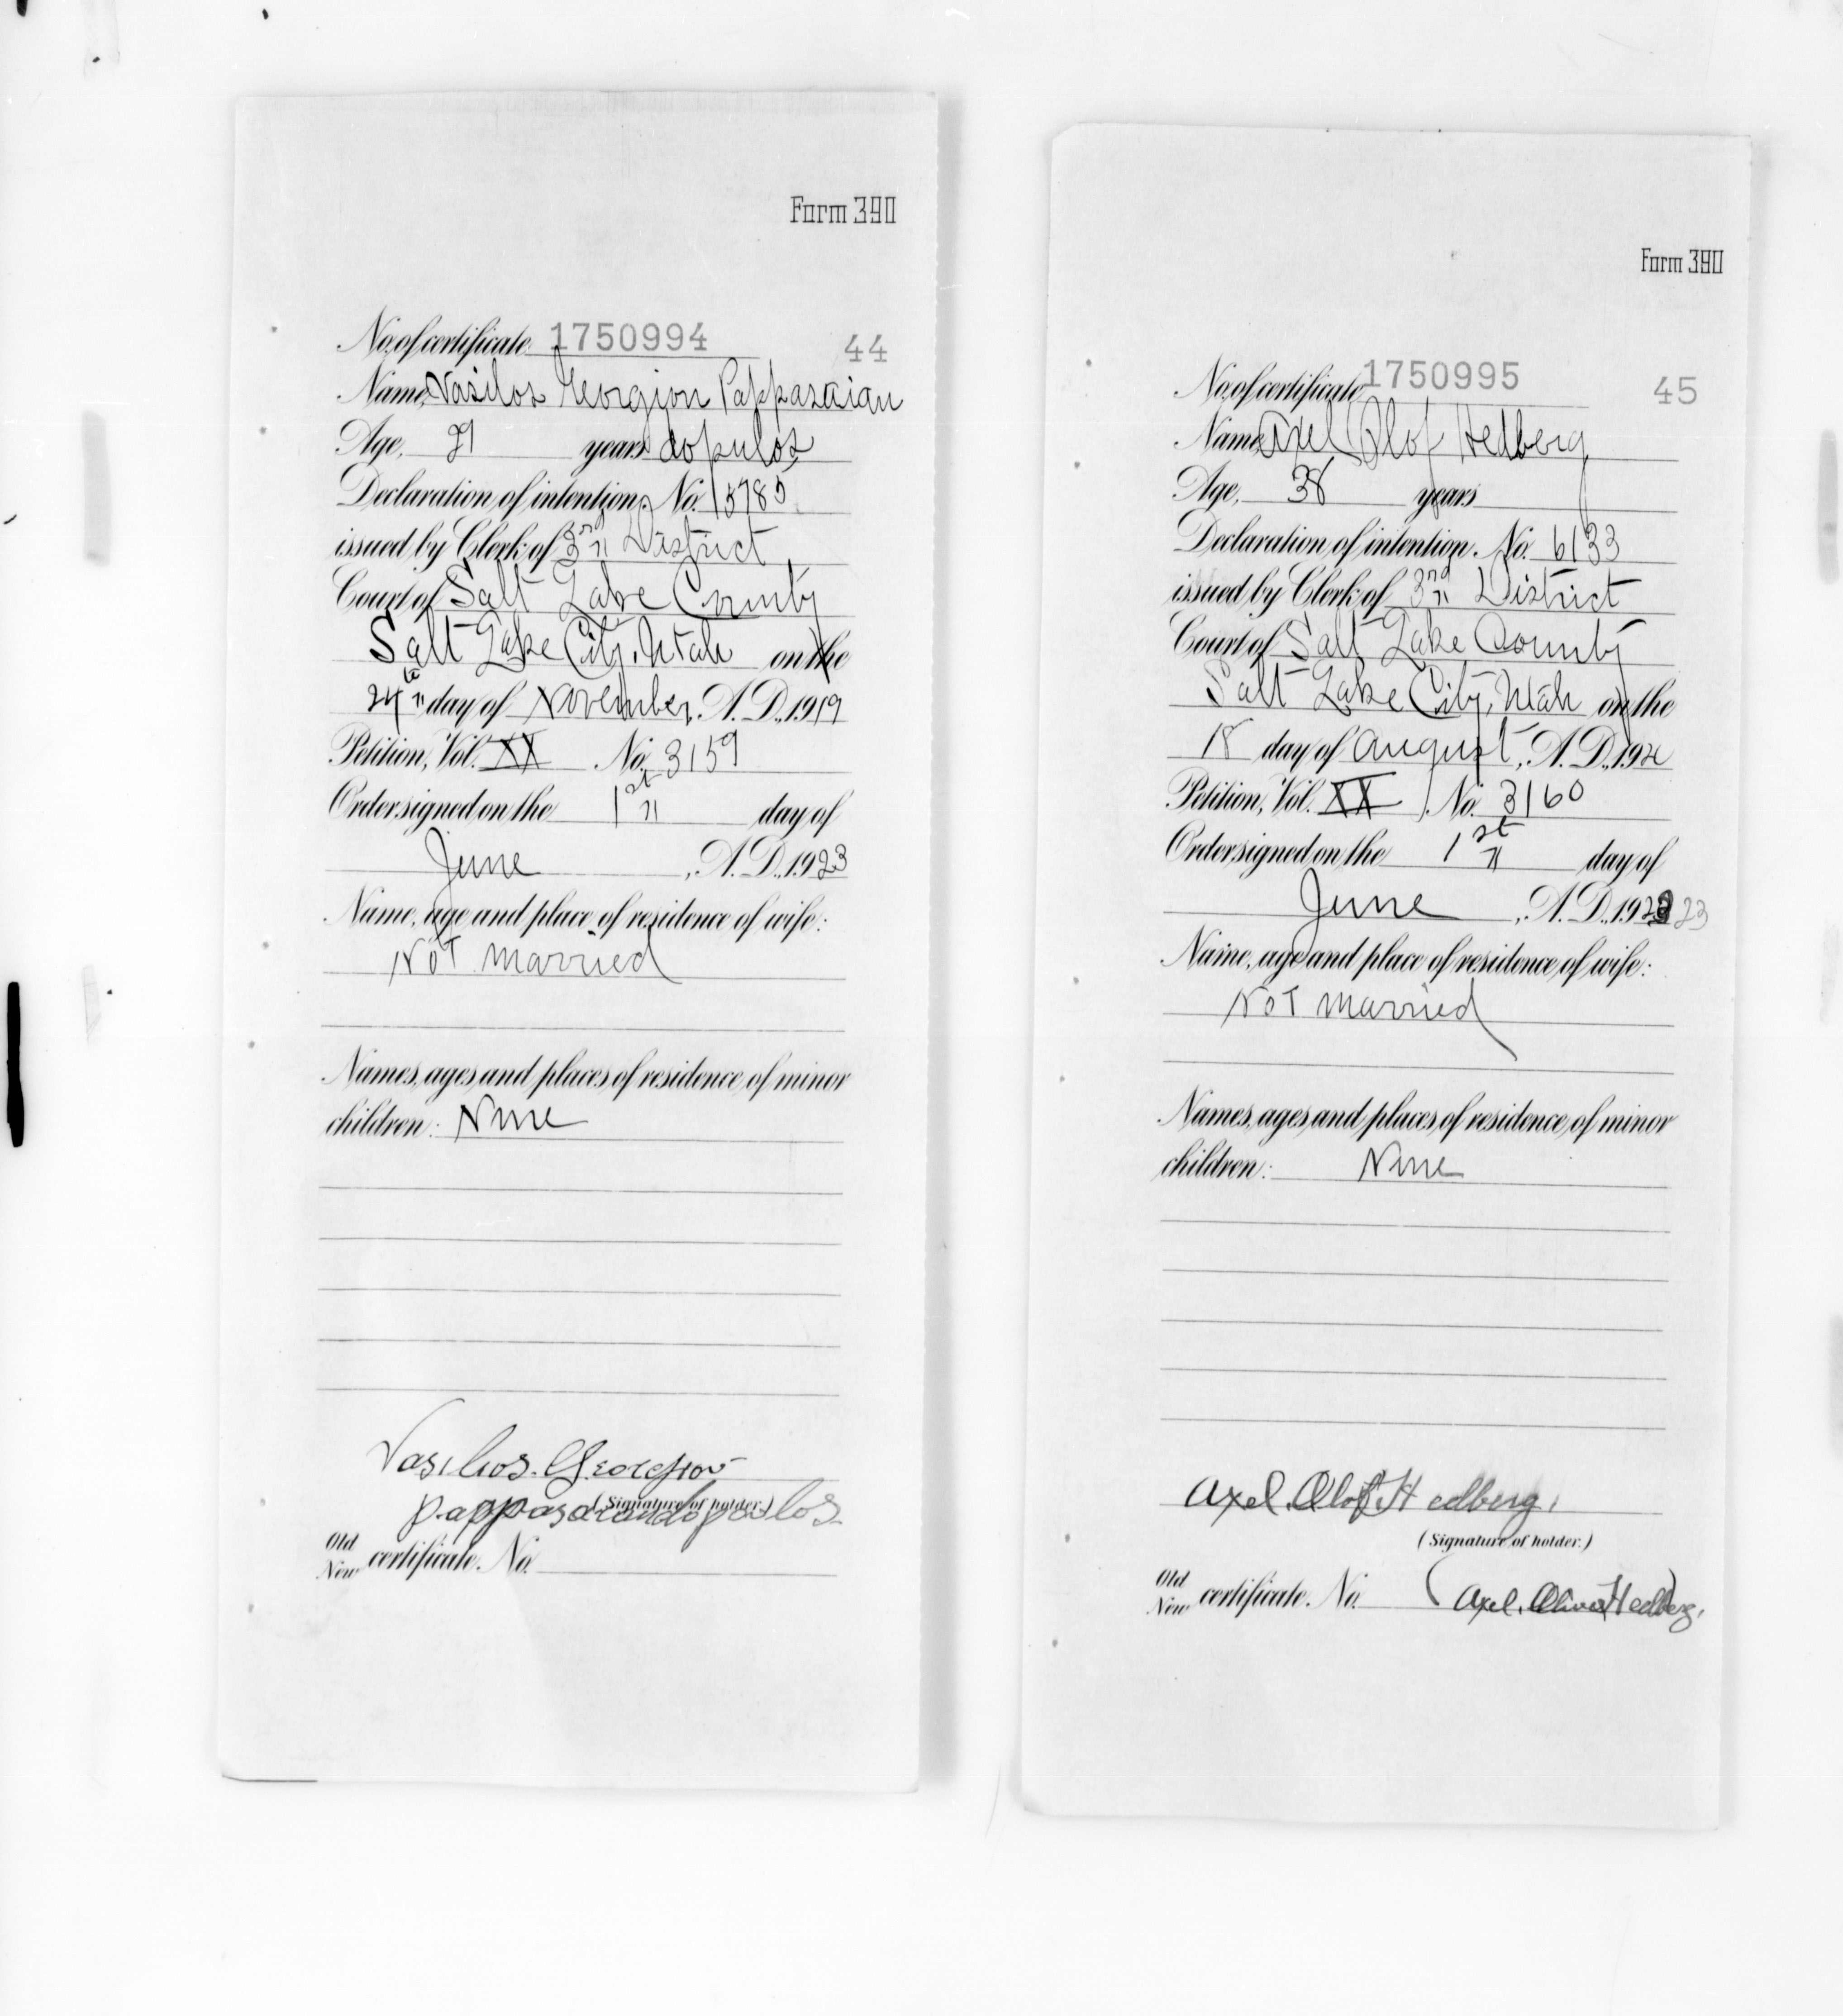 Form 390
No. of certificate 1750994 44
Name, Vasilos Georgion Pappasaian
Age, 21 years dopulos
Declaration of intention, No. 15785
issued by Clerk of 3rd District
Court of Salt Lake County
Salt Lake City, Utah on the
24th day of November, A.D., 1919
Petition, Vol. XX No. 3159
Order signed on the 1st day of
June, A.D., 1923
Name, age and place of residence of wife:
Not married
Names, ages and places of residence of minor
children: None
Vasilios. Georgiou
(Signature of holder.)
Old
New certificate. No.
Form 390
No. of certificate 1750995 45
Name, Axel Olof Hedberg
Age, 38 years
Declaration of intention. No. 6133
issued by Clerk of 3rd District
Court of Salt Lake County
Salt Lake City, Utah on the
18 day of August, A.D., 192
Petition, Vol. XX No. 3160
Order signed on the 1st day of
June, A.D., 1923 23
Name, age and place of residence of wife:
Not married
Names, ages and places of residence of minor
children: None
Axel. Olof Hedberg.
(Signature of holder.)
Old
New certificate. No. (Axel. Oliver Hedberg.)